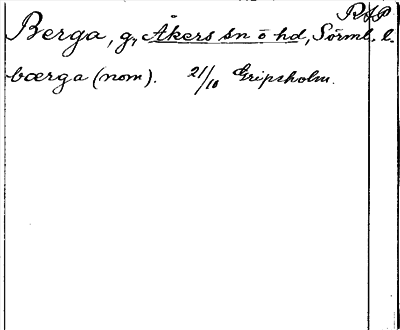 RAP
Berga, g, Åkers sn ö hd, Sörml. l.
bœrga (nom). 21/10 Gripsholm.